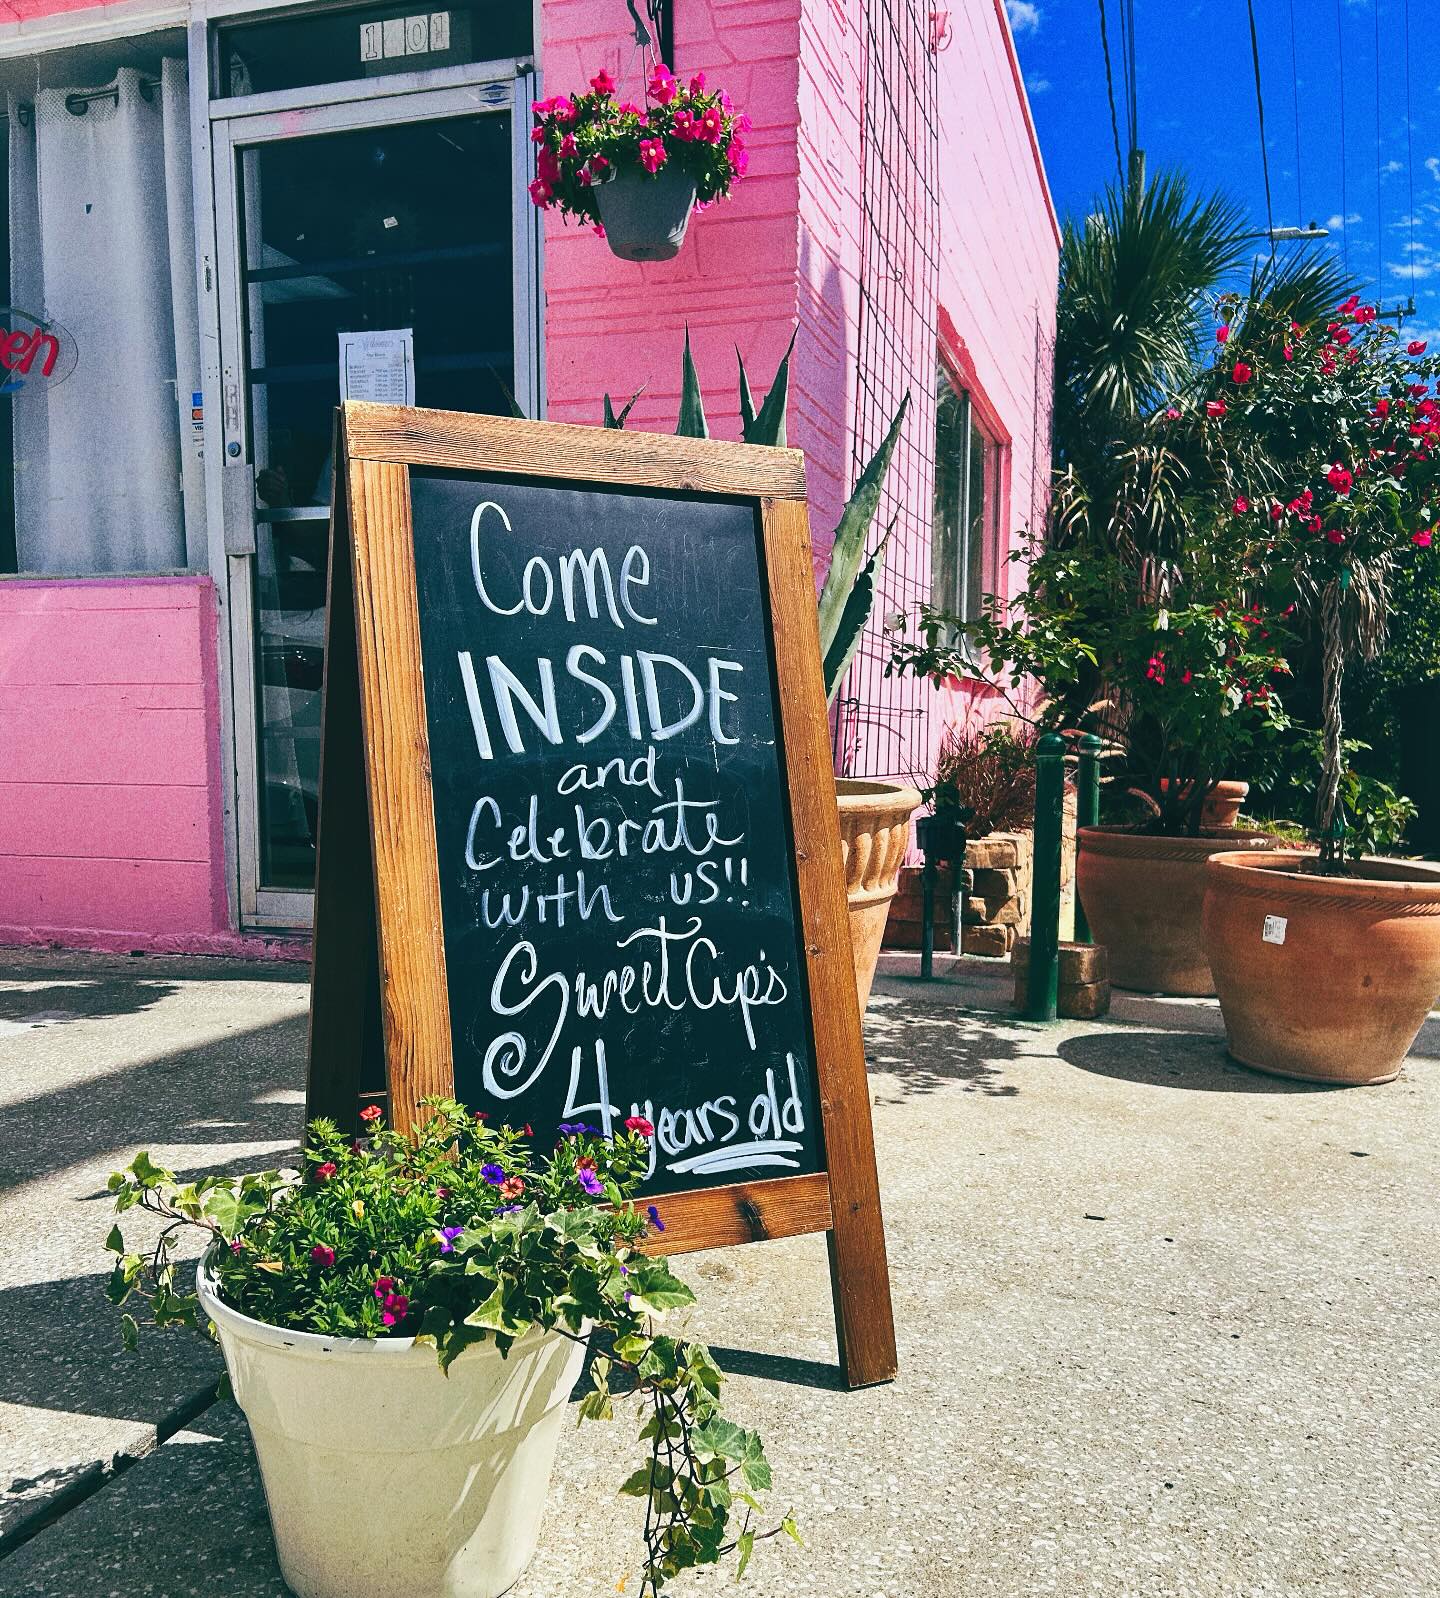 1401
en
VISA
Come
INSIDE
and
Celebrate
with us!!
Sweet Cup's
4 years old